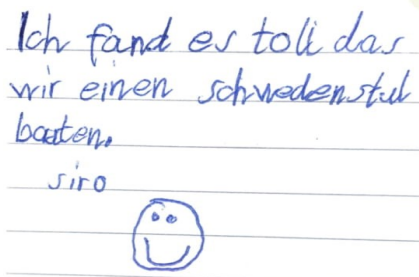 Ich fand es toll das
wir einen schwedenstul
bauten.
siro